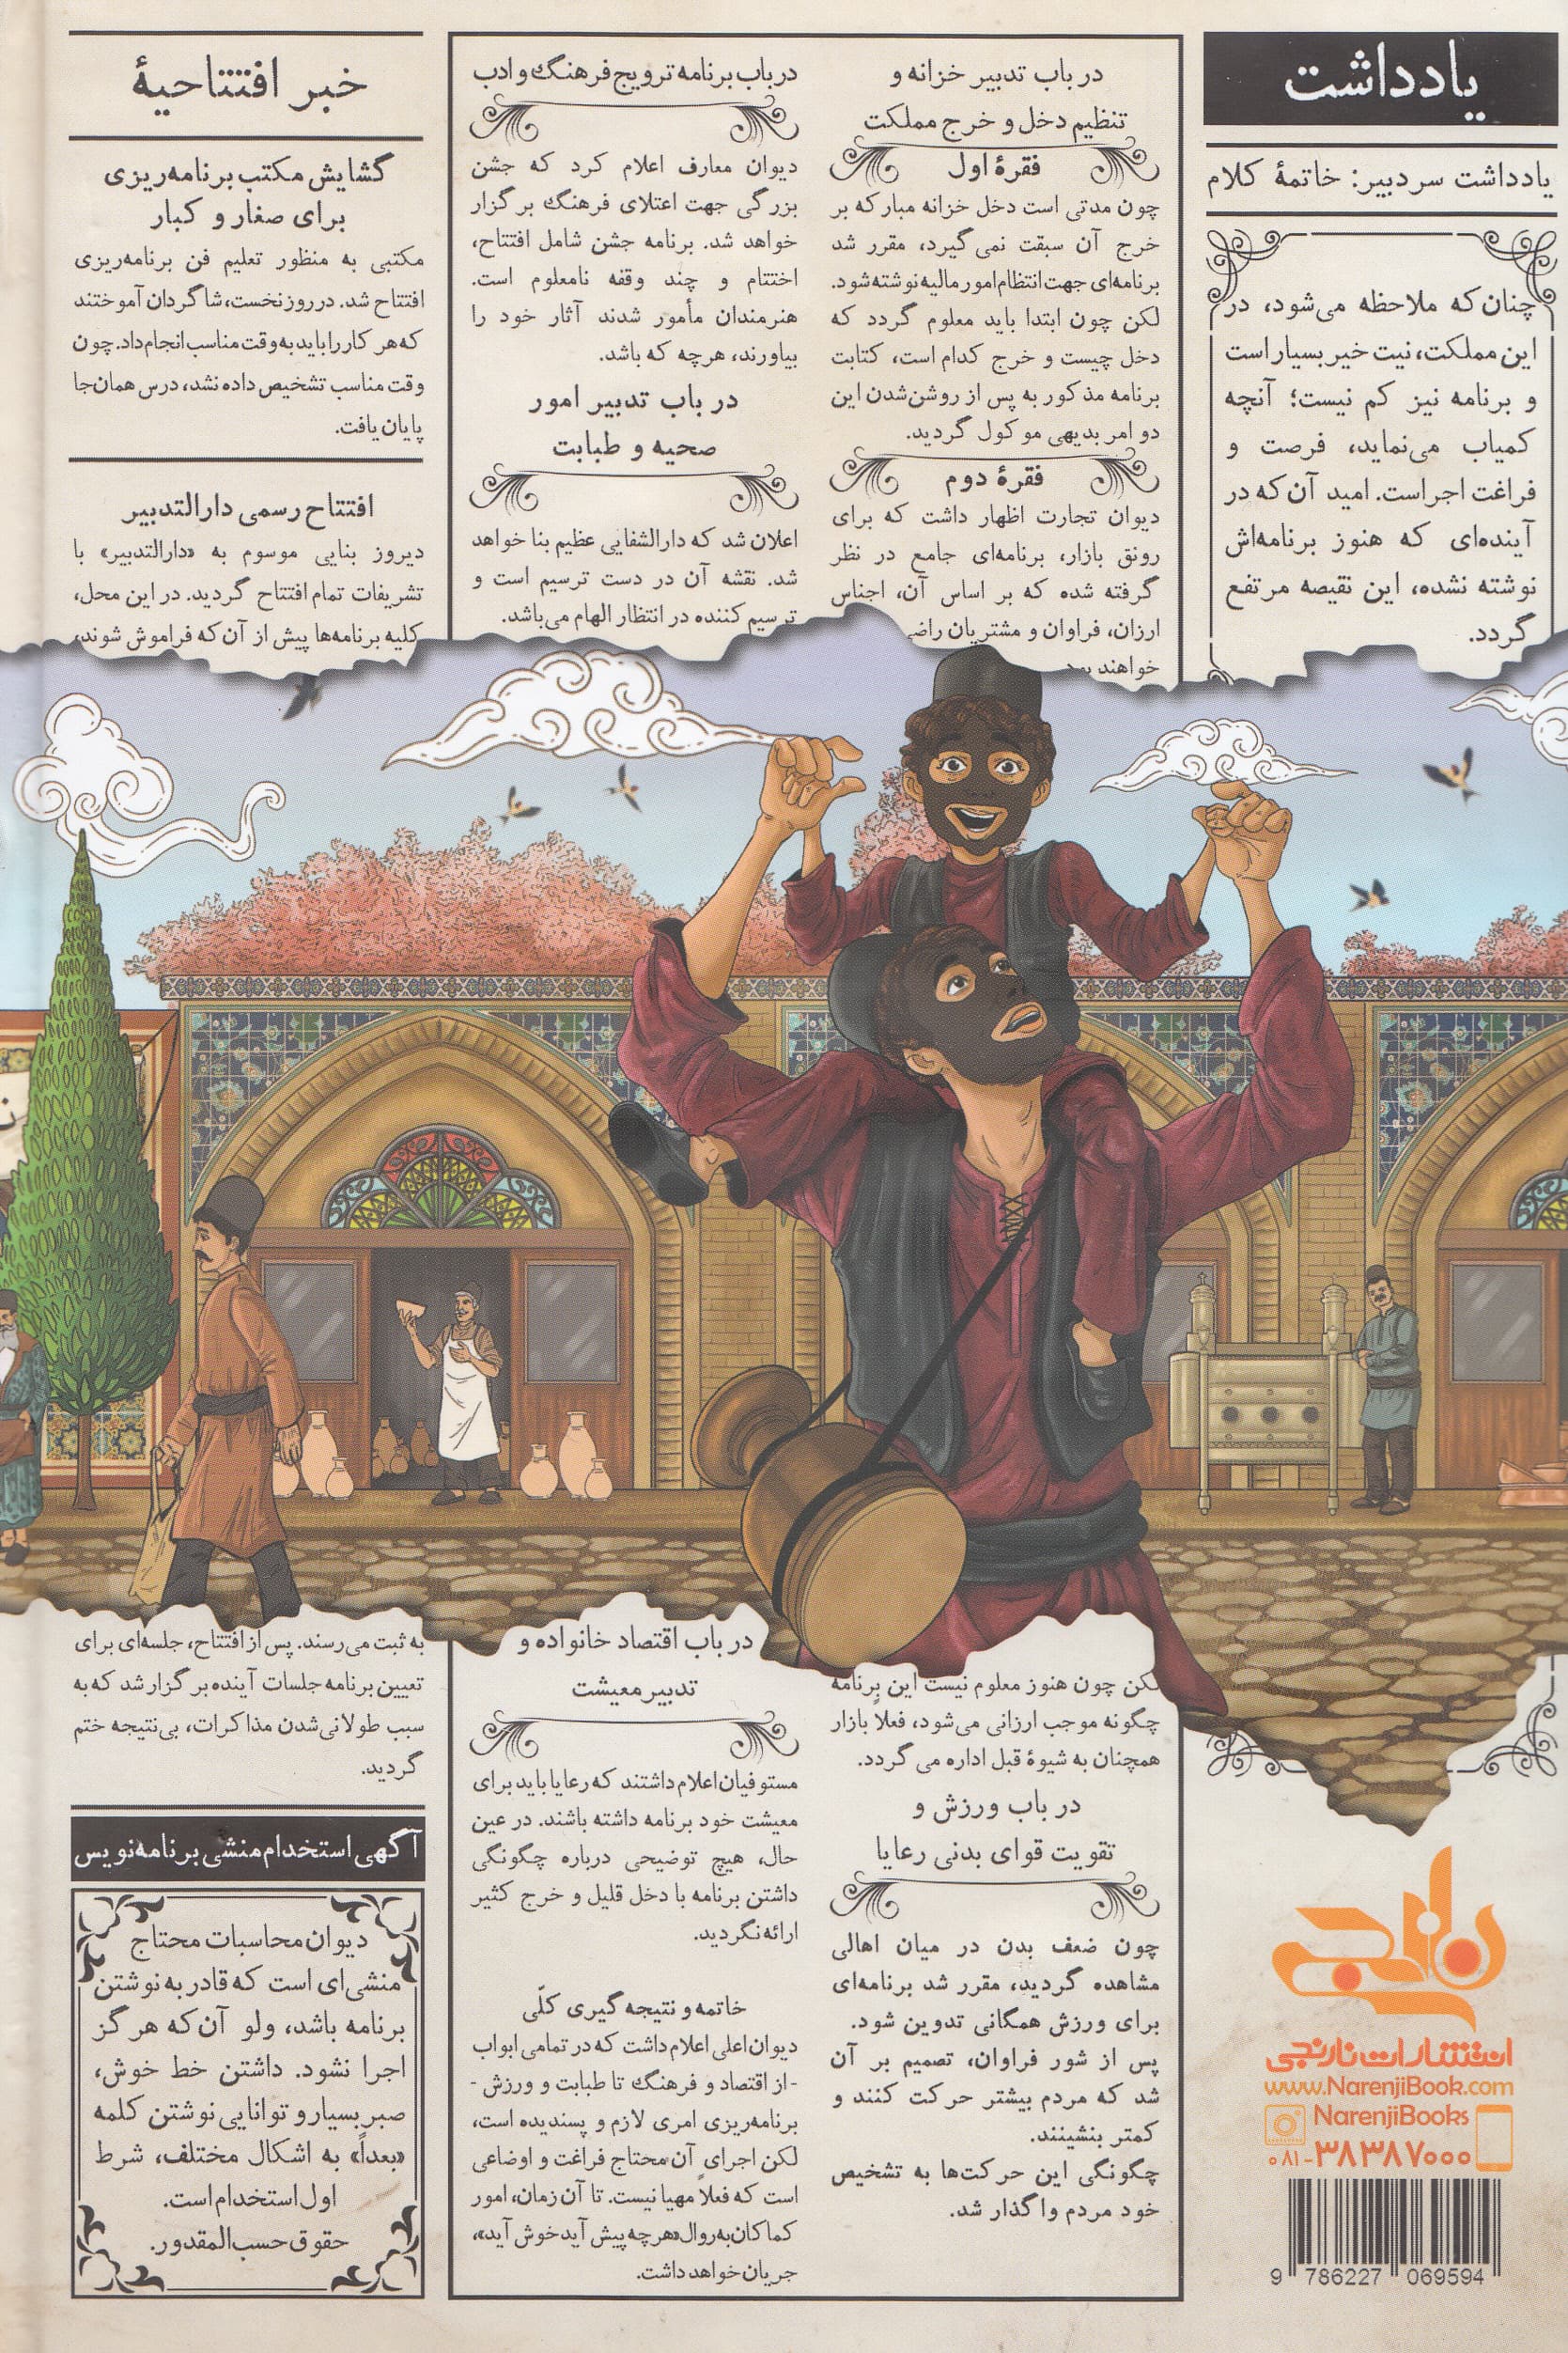 یادداشت
یادداشت سردبیر: خاتمهٔ کلام
چنان‌که ملاحظه می‌شود، در
این مملکت، نیت خیر بسیار است
و برنامه نیز کم نیست؛ آنچه
کمیاب می‌نماید، فرصت و
فراغت اجراست. امید آن‌که در
آینده‌ای که هنوز برنامه‌اش
نوشته نشده، این نقیصه مرتفع
گردد.
در باب تدبیر خزانه و
تنظیم دخل و خرج مملکت
فقرهٔ اول
چون مدتی است دخل خزانه مبارکه بر
خرج آن سبقت نمی‌گیرد، مقرر شد
برنامه‌ای جهت انتظام امور مالیه نوشته شود.
لکن چون ابتدا باید معلوم گردد که
دخل چیست و خرج کدام است، کتابت
برنامه مذکور به پس از روشن‌شدن این
دو امر بدیهی موکول گردید.
فقرهٔ دوم
دیوان تجارت اظهار داشت که برای
رونق بازار، برنامه‌ای جامع در نظر
گرفته شده که بر اساس آن، اجناس
ارزان، فراوان و مشتریان راضی
خواهند بود.
لکن چون هنوز معلوم نیست این برنامه
چگونه موجب ارزانی می‌شود، فعلاً بازار
همچنان به شیوهٔ قبل اداره می گردد.
در باب ورزش و
تقویت قوای بدنی رعایا
چون ضعف بدن در میان اهالی
مشاهده گردید، مقرر شد برنامه‌ای
برای ورزش همگانی تدوین شود.
پس از شور فراوان، تصمیم بر آن
شد که مردم بیشتر حرکت کنند و
کمتر بنشینند.
چگونگی این حرکت‌ها به تشخیص
خود مردم واگذار شد.
در باب برنامه ترویج فرهنگ و ادب
دیوان معارف اعلام کرد که جشن
بزرگی جهت اعتلای فرهنگ برگزار
خواهد شد. برنامه جشن شامل افتتاح،
اختتام و چند وقفه نامعلوم است.
هنرمندان مأمور شدند آثار خود را
بیاورند، هرچه که باشد.
در باب تدبیر امور
صحیه و طبابت
اعلان شد که دارالشفایی عظیم بنا خواهد
شد. نقشه آن در دست ترسیم است و
ترسیم‌کننده در انتظار الهام می‌باشد.
در باب اقتصاد خانواده و
تدبیر معیشت
مستوفیان اعلام داشتند که رعایا باید برای
معیشت خود برنامه داشته باشند. در عین
حال، هیچ توضیحی درباره چگونگی
داشتن برنامه با دخل قلیل و خرج کثیر
ارائه نگردید.
خاتمه و نتیجه گیری کلّی
دیوان اعلی اعلام داشت که در تمامی ابواب
-از اقتصاد و فرهنگ تا طبابت و ورزش-
برنامه‌ریزی امری لازم و پسندیده است،
لکن اجرای آن محتاج فراغت و اوضاعی
است که فعلاً مهیا نیست. تا آن زمان، امور
کماکان به روال «هرچه پیش آید خوش آید»،
جریان خواهد داشت.
خبر افتتاحیهٔ
گشایش مکتب برنامه‌ریزی
برای صغار و کبار
مکتبی به منظور تعلیم فن برنامه‌ریزی
افتتاح شد. در روز نخست، شاگردان آموختند
که هر کار را باید به وقت مناسب انجام داد. چون
وقت مناسب تشخیص داده نشد، درس همان‌جا
پایان یافت.
افتتاح رسمی دارالتدبیر
دیروز بنایی موسوم به «دارالتدبیر» با
تشریفات تمام افتتاح گردید. در این محل،
کلیه برنامه‌ها پیش از آن‌که فراموش شوند،
به ثبت می‌رسند. پس از افتتاح، جلسه‌ای برای
تعیین برنامه جلسات آینده برگزار شد که به
سبب طولانی‌شدن مذاکرات، بی‌نتیجه ختم
گردید.
آگهی استخدام منشی برنامه‌نویس
دیوان محاسبات محتاج
منشی‌ای است که قادر به نوشتن
برنامه باشد، ولو آن‌که هرگز
اجرا نشود. داشتن خط خوش،
صبر بسیار و توانایی نوشتن کلمه
«بعداً» به اشکال مختلف، شرط
اول استخدام است.
حقوق حسب‌المقدور.
نارنجی
انتشارات نارنجی
www.NarenjiBook.com
NarenjiBooks
۰۸۱-۳۸۳۸۷۰۰۰
9 786227 069594